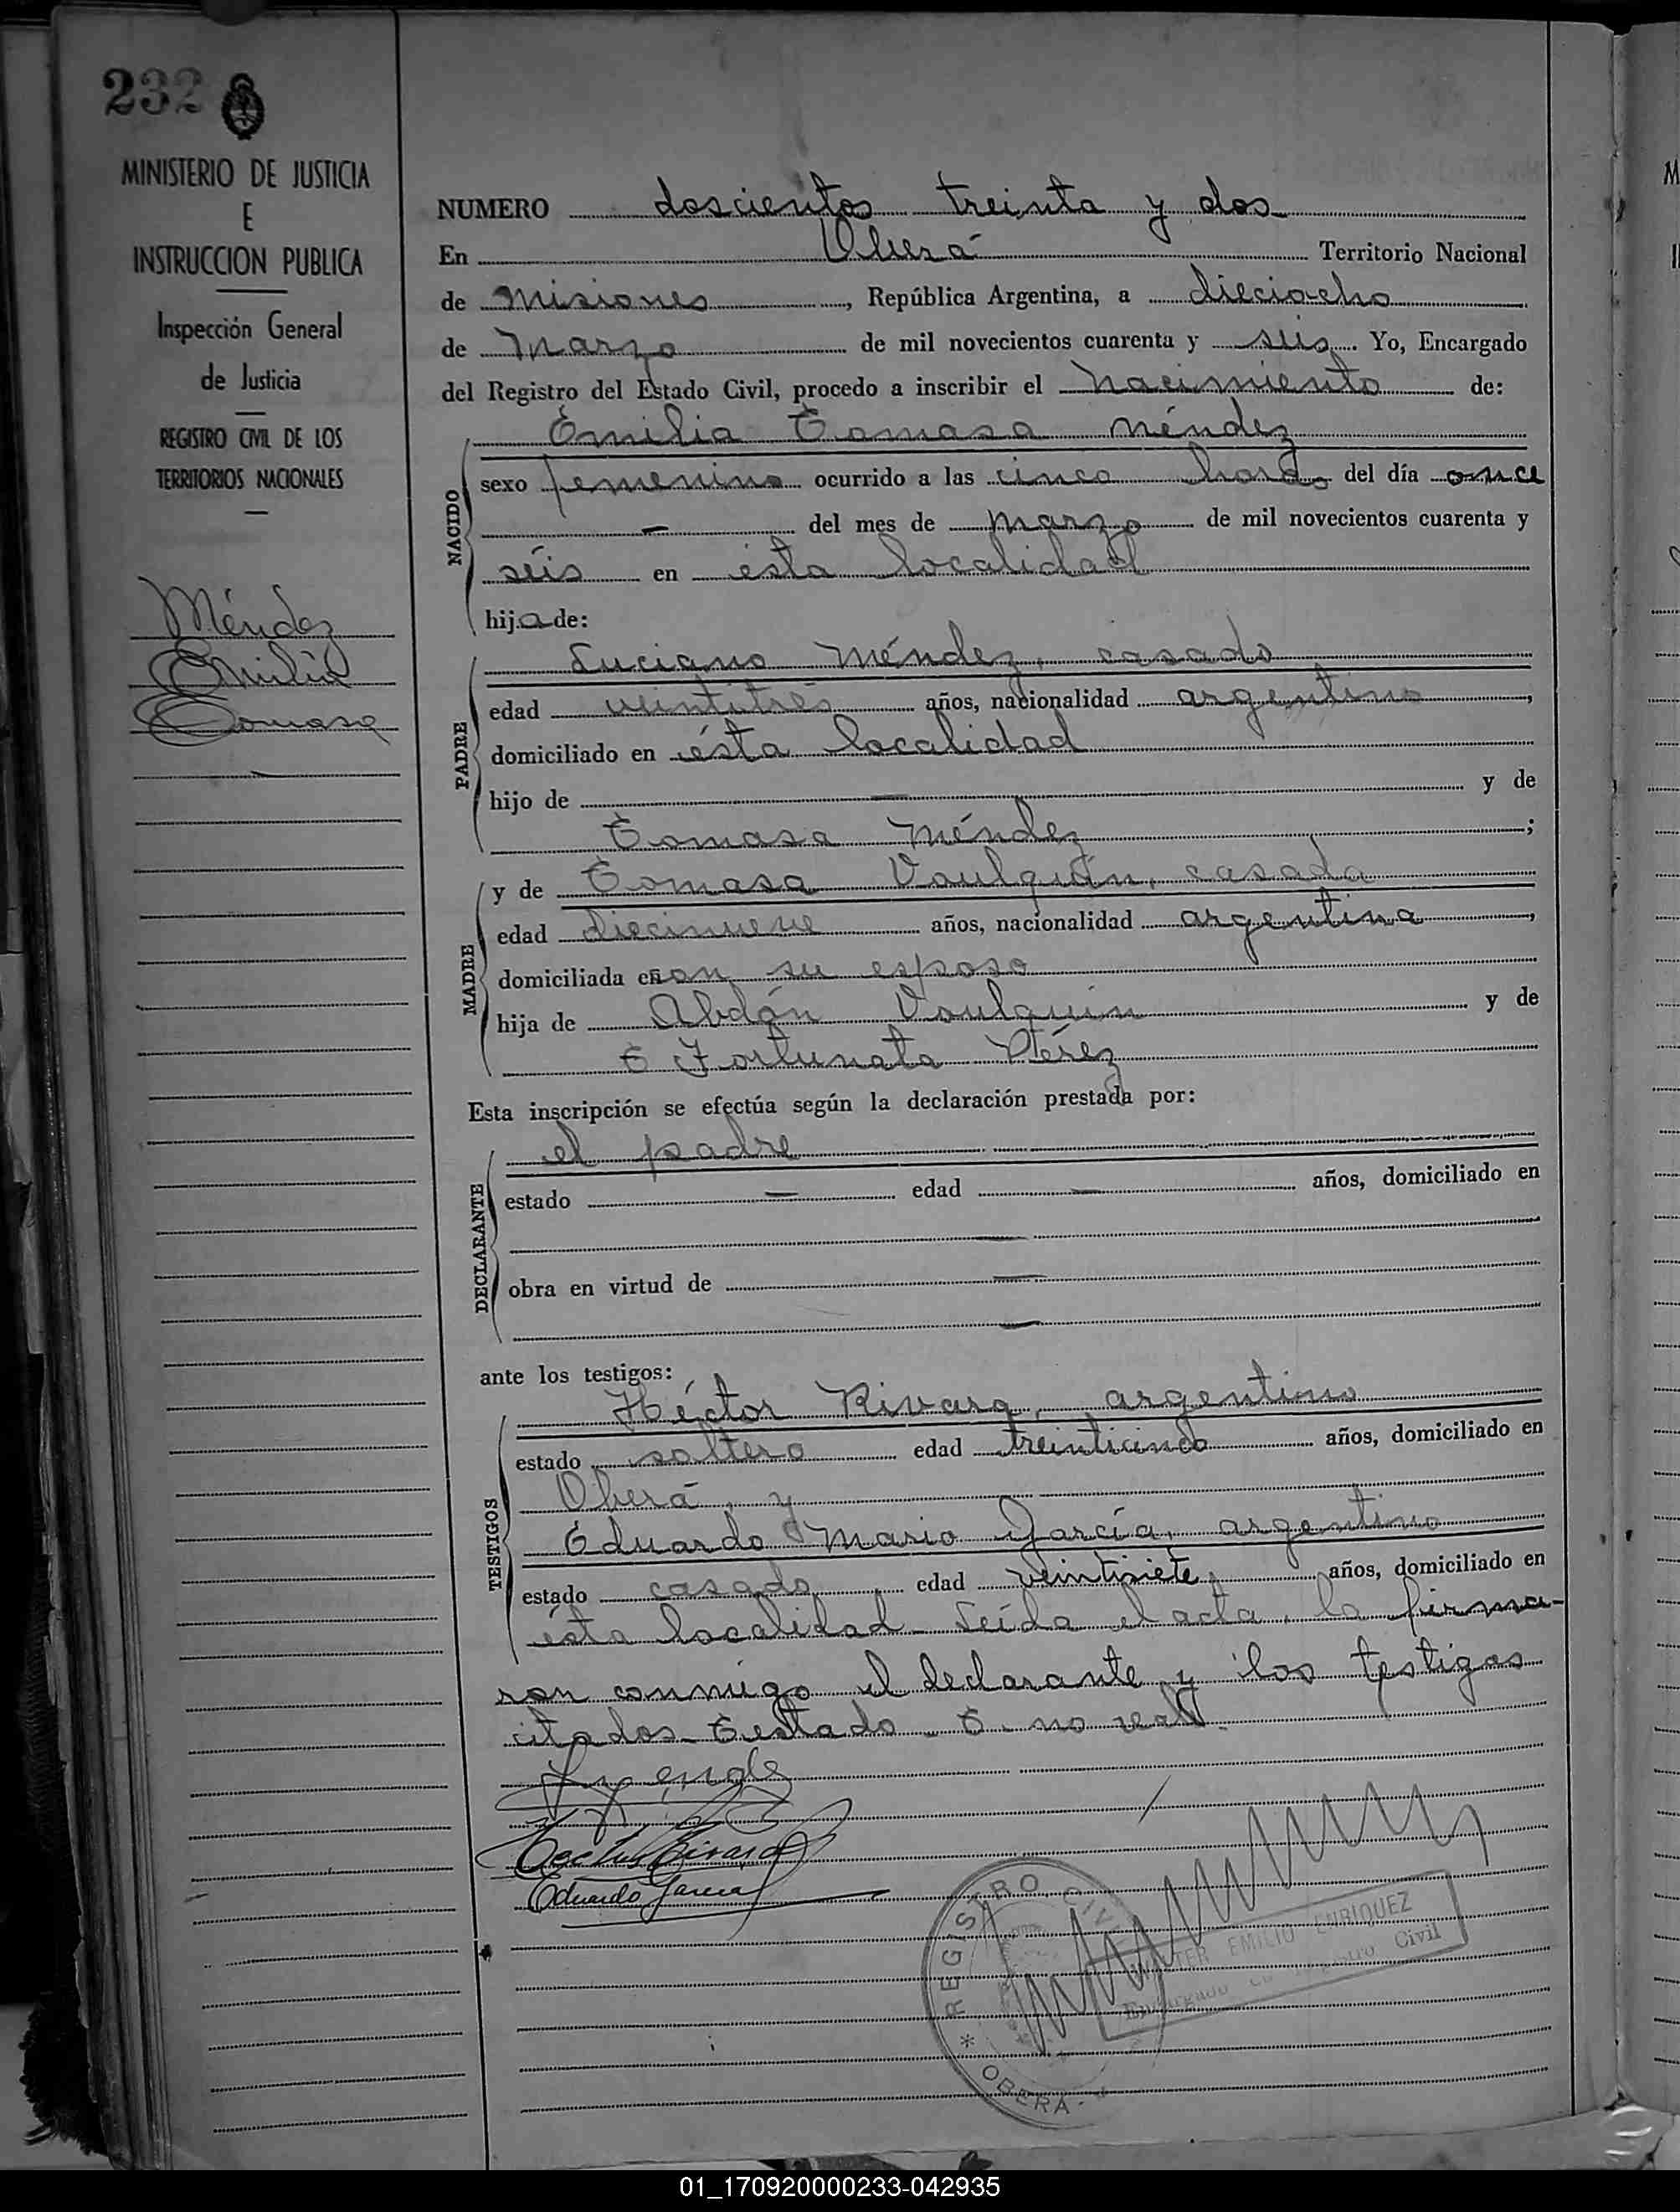 232
MINISTERIO DE JUSTICIA
E
INSTRUCCION PUBLICA
Inspección General
de Justicia
REGISTRO CIVIL DE LOS
TERRITORIOS NACIONALES
Méndez
Emilia
Tomasa
NUMERO doscientos treinta y dos
En Oberá Territorio Nacional
de Misiones, República Argentina, a dieciocho
de Marzo de mil novecientos cuarenta y seis. Yo, Encargado
del Registro del Estado Civil, procedo a inscribir el nacimiento de:
Emilia Tomasa Méndez
NACIDO
sexo femenino ocurrido a las cinco horas del día once
— del mes de marzo de mil novecientos cuarenta y
séis en ésta localidad
hija de:
Luciano Méndez, casado
PADRE
edad veintitrés años, nacionalidad argentino,
domiciliado en ésta localidad
hijo de — y de
Tomasa Méndez;
y de Tomasa Voulquín, casada
MADRE
edad diecinueve años, nacionalidad argentina,
domiciliada con su esposo
hija de Abdón Voulquin y de
E Fortunata Pérez
Esta inscripción se efectúa según la declaración prestada por:
el padre
DECLARANTE
estado — edad — años, domiciliado en
—
obra en virtud de —
—
ante los testigos:
Héctor Rivara, argentino
TESTIGOS
estado soltero edad treinticinco años, domiciliado en
Oberá, y
Eduardo Mario García, argentino
estado casado, edad veintisiete, años, domiciliado en
ésta localidad. Leída el acta, la firma-
ron conmigo el declarante y los testigos
citados. Testado E. no vale.
Eduardo Garcia
REGISTRO CIVIL
* OBERA -
EMILIO ENRIQUEZ
Encargado Registro Civil
01_170920000233-042935